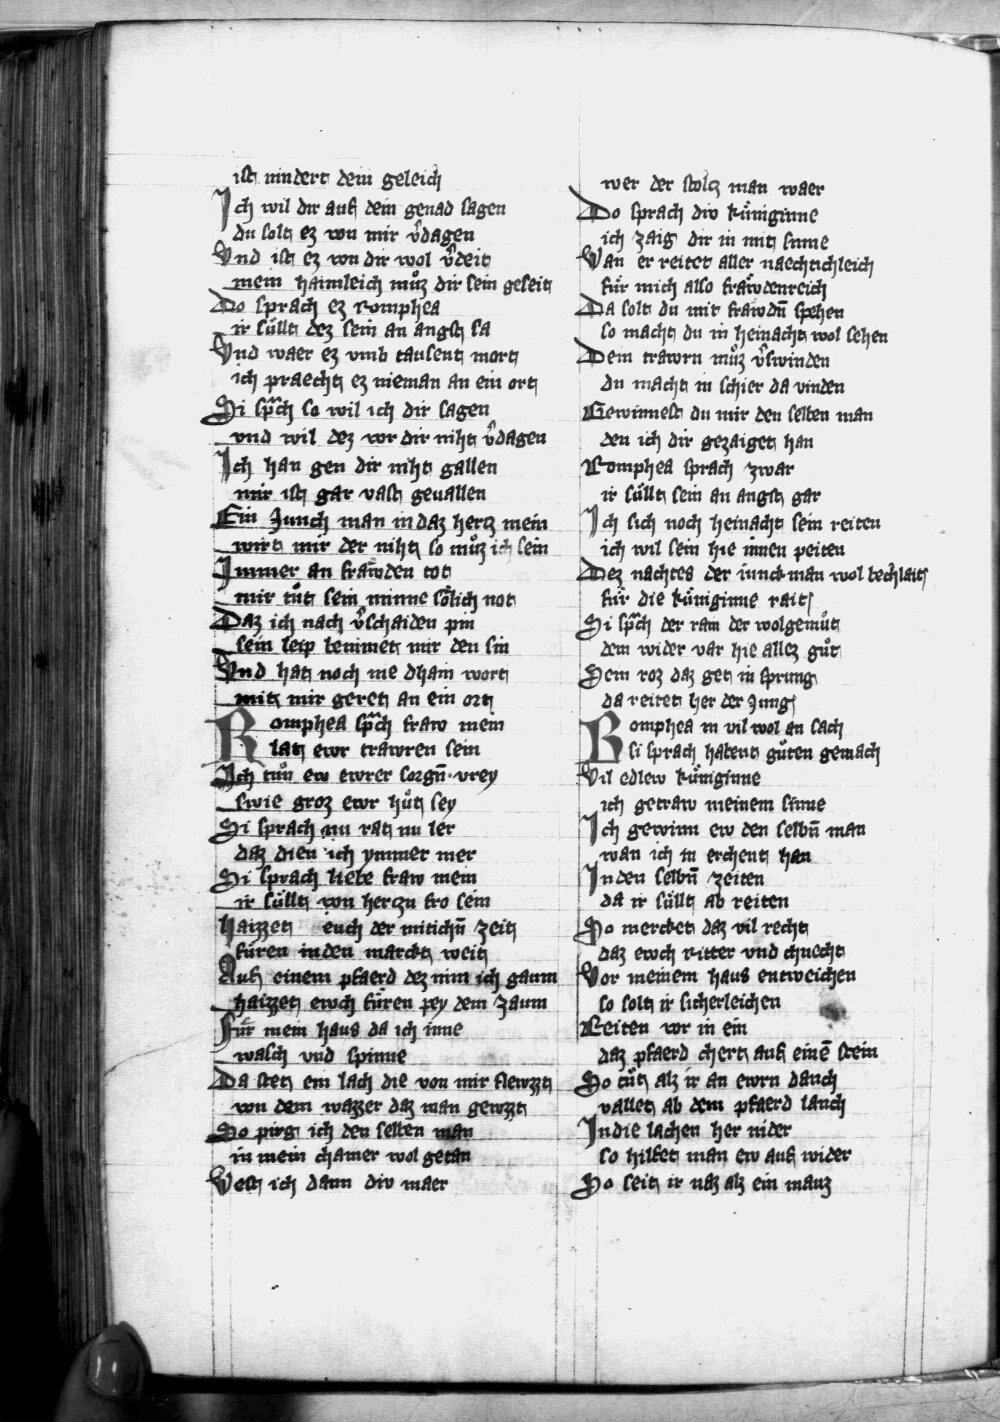 ist nindert dein geleich
Ich wil dir auf dein genad sagen
du solt ez von mir v̄dagen
Vnd ist ez von dir wol v̄deit
mein haimleich můz dir sein geseit
Do sprach ez romphea
ir sůllt dez sein an angst sa
Vnd waer ez vmb tausent mort
ich praecht ez nieman an ein ort
Si sp̄ch so wil ich dir sagen
vnd wil dez vor dir niht v̄dagen
Ich han gen dir niht gallen
mir ist gar vast geuallen
Ein Junch man in daz hercz mein
wirt mir der niht so můz ich sein
Immer an frawden tot
mir tůt sein minne sŏlich not
Daz ich nach v̄schaiden pin
sein leip benimet mir den sin
Vnd hat noch nie dhain wort
mit mir geret an ein ort
Romphea sp̄ch fraw mein
lat ewr trawren sein
Ich tůn ew ewrer sorgn̄ vrey
swie groz ewr hůt sey
Si sprach nu rat nu ler
daz dien ich ymmer mer
Si sprach liebe fraw mein
ir sůllt von herczn fro sein
Haizzet euch der mitichn̄ zeit
fůren inden marckt weit
Auf einem pfaerd dez nim ich gaum
haizzet ewch fůren pey dem zaum
Fůr mein haus da ich inne
wasch vnd spinne
Da stet ein lach die von mir flewzzt
von dem wazzer daz man gewzzt
So pirg ich den selben man
in mein chamer wol getan
West ich dann div maer
wer der stolcz man waer
Do sprach div kůniginne
ich zaig dir in mit sinne
Wan er reitet aller naechtichleich
fůr mich also frawdenreich
Da solt du mit frawdn̄ spehen
so macht du in heinacht wol sehen
Dein trawrn můz v̄swinden
du macht in schier da vinden
Gewinnest du mir den selben man
den ich dir gezaiget han
Romphea sprach zwar
ir sůllt sein an angst gar
Ich sich noch heinacht sein reiten
ich wil sein hie innen peiten
Dez nachtes der iunckman wol bechlait
fůr die kůniginne rait
Si sp̄ch der rain der wolgemůt
dem wider var hie allez gůt
Sein roz daz get in sprung
da reitet her der Jung
Romphea in vil wol an sach
si sprach habent gůten gemach
Vil edlew kůniginne
ich getraw meinem sinne
Ich gewinn ew den selbn̄ man
wan ich in erchent han
In den selbn̄ zeiten
da ir sůllt ab reiten
So merchet daz vil recht
daz ewch ritter vnd chnecht
Vor meinem haus entweichen
so solt ir sicherleichen
Reiten vor in ein
daz pfaerd chert auf einē stein
So tůt alz ir an ewrn danch
vallet ab dem pfaerd lanch
In die lachen her nider
so hilfet man ew auf wider
So seit ir naz alz ein mauz